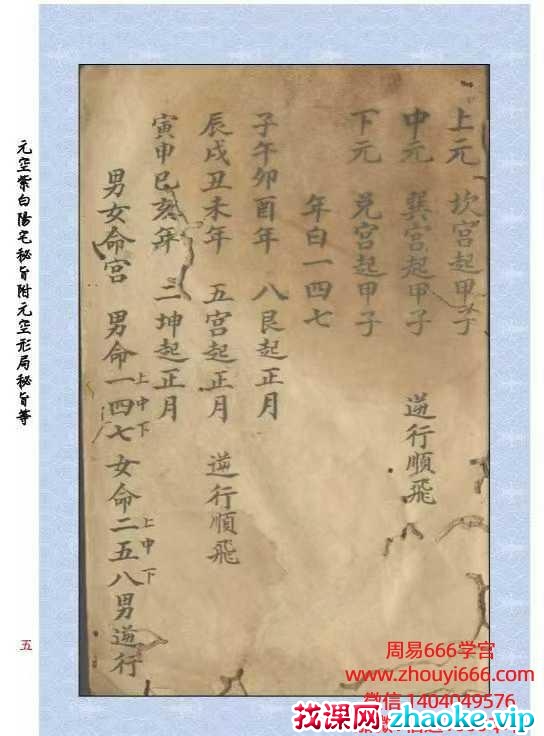 上元 坎宫起甲子
中元 巽宫起甲子 逆行順飛
下元 兑宫起甲子
年白一四七
子午卯酉年 八艮起正月
辰戌丑未年 五宫起正月 逆行順飛
寅申巳亥年 二坤起正月
男女命宫 男命一四七上中下 女命二五八上中下 男逆行
元空紫白陽宅秘旨附元空形局秘旨等
五
周易666学宫
www.zhouyi666.com
微信 1404049576
找课网zhaoke.vip